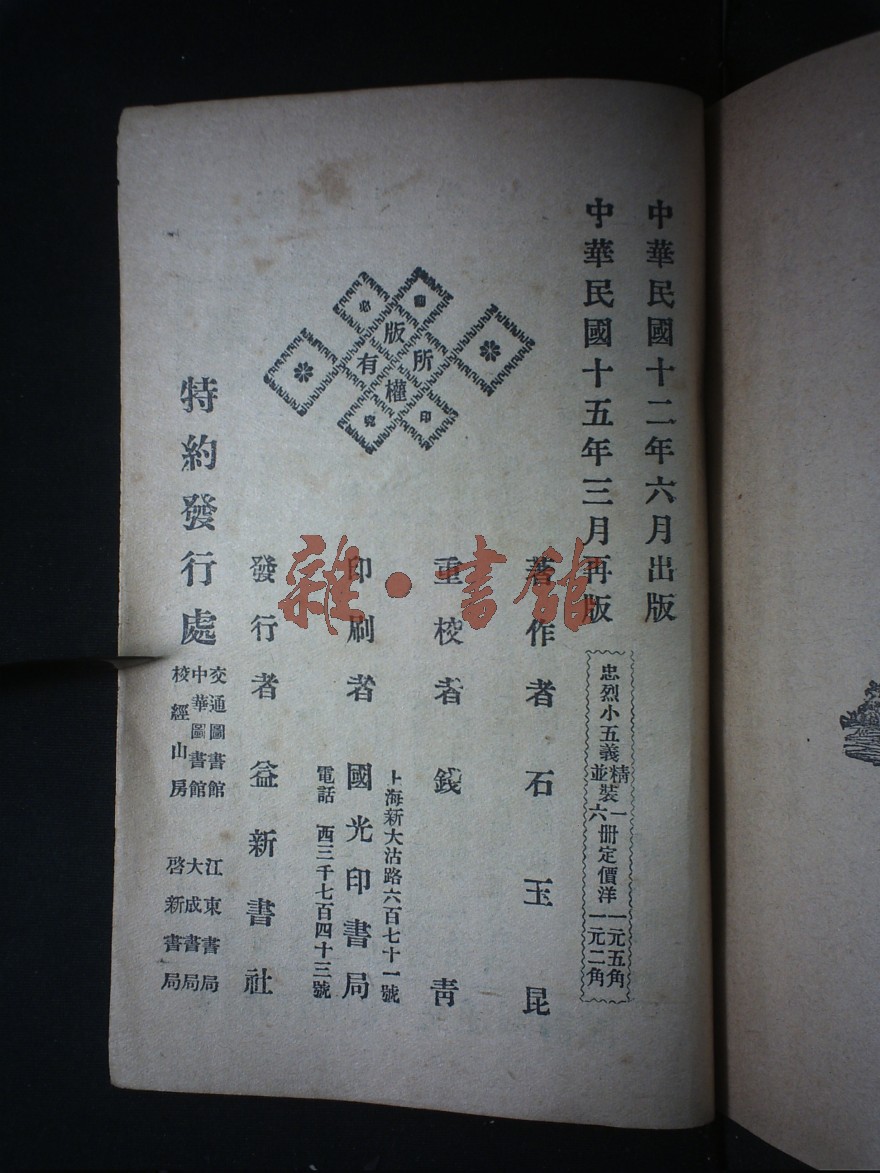 中華民國十二年六月出版
中華民國十五年三月再版
忠烈小五義
精裝一冊定價洋一元五角
並裝六冊定價洋一元二角
著作者 石玉昆
重校者 錢青
印刷者 國光印書局
上海新大沽路六百七十一號
電話 西三千七百四十三號
發行者 益新書社
特約發行處
交通圖書館 江東書局
中華圖書館 大成書局
校經山房 啓新書局
版權所有
翻印必究
雜·書館